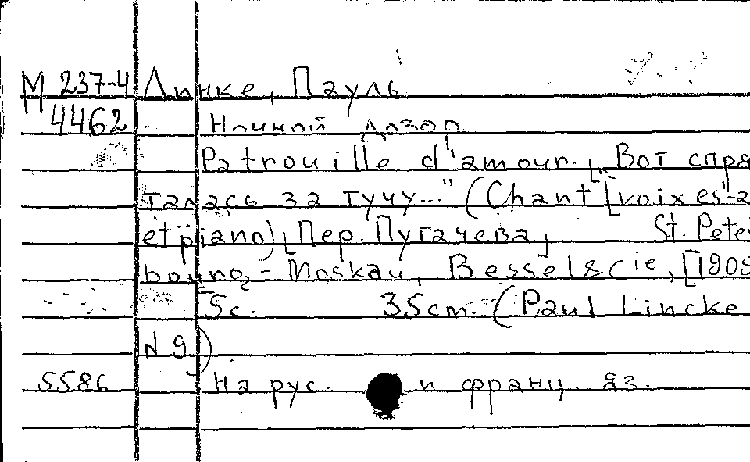 М 237-4 Линке, Пауль
4462 Ночной дозор
Patrouille d'amour. „Вот спря
талась за тучу..." (Chant [voix es a
et piano), Пер. Пугачева, St. Peter
bourg - Moskau, Bessel & cie, [190
5с. 35cm. (Paul Lincke
N 9)
5586 На рус. и франц. яз.